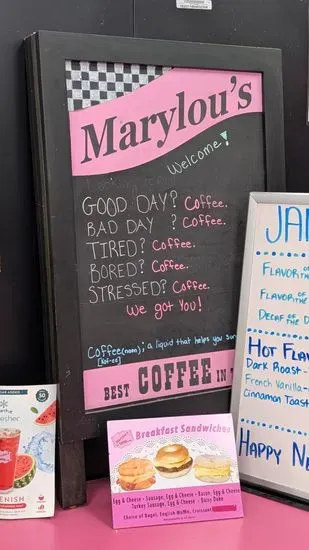 Marylou's
Welcome!
GOOD DAY? Coffee.
BAD DAY ? Coffee.
TIRED? Coffee.
BORED? Coffee.
STRESSED? Coffee.
We got you!
Coffee(noun); a liquid that helps you sur
[Kof-ee]
BEST COFFEE IN T
Breakfast Sandwiches
Egg & Cheese - Sausage, Egg & Cheese - Bacon, Egg & Cheese
Turkey Sausage, Egg & Cheese - Daisy Duke
Choice of Bagel, English Muffin, Croissant
ENISH
JAN
FLAVOR OF THE
FLAVOR OF THE
DECAF OF THE D
HOT FLAV
Dark Roast-
French Vanilla-
Cinnamon Toast
HAPPY NE